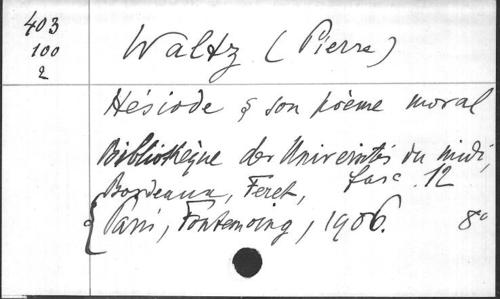 403
100
2
Waltz (Pierre)
Hésiode & son poème moral
Bibliothèque des Universités du midi,
Bordeaux, Feret, fasc. 12
Paris, Fontemoing, 1906. 8°